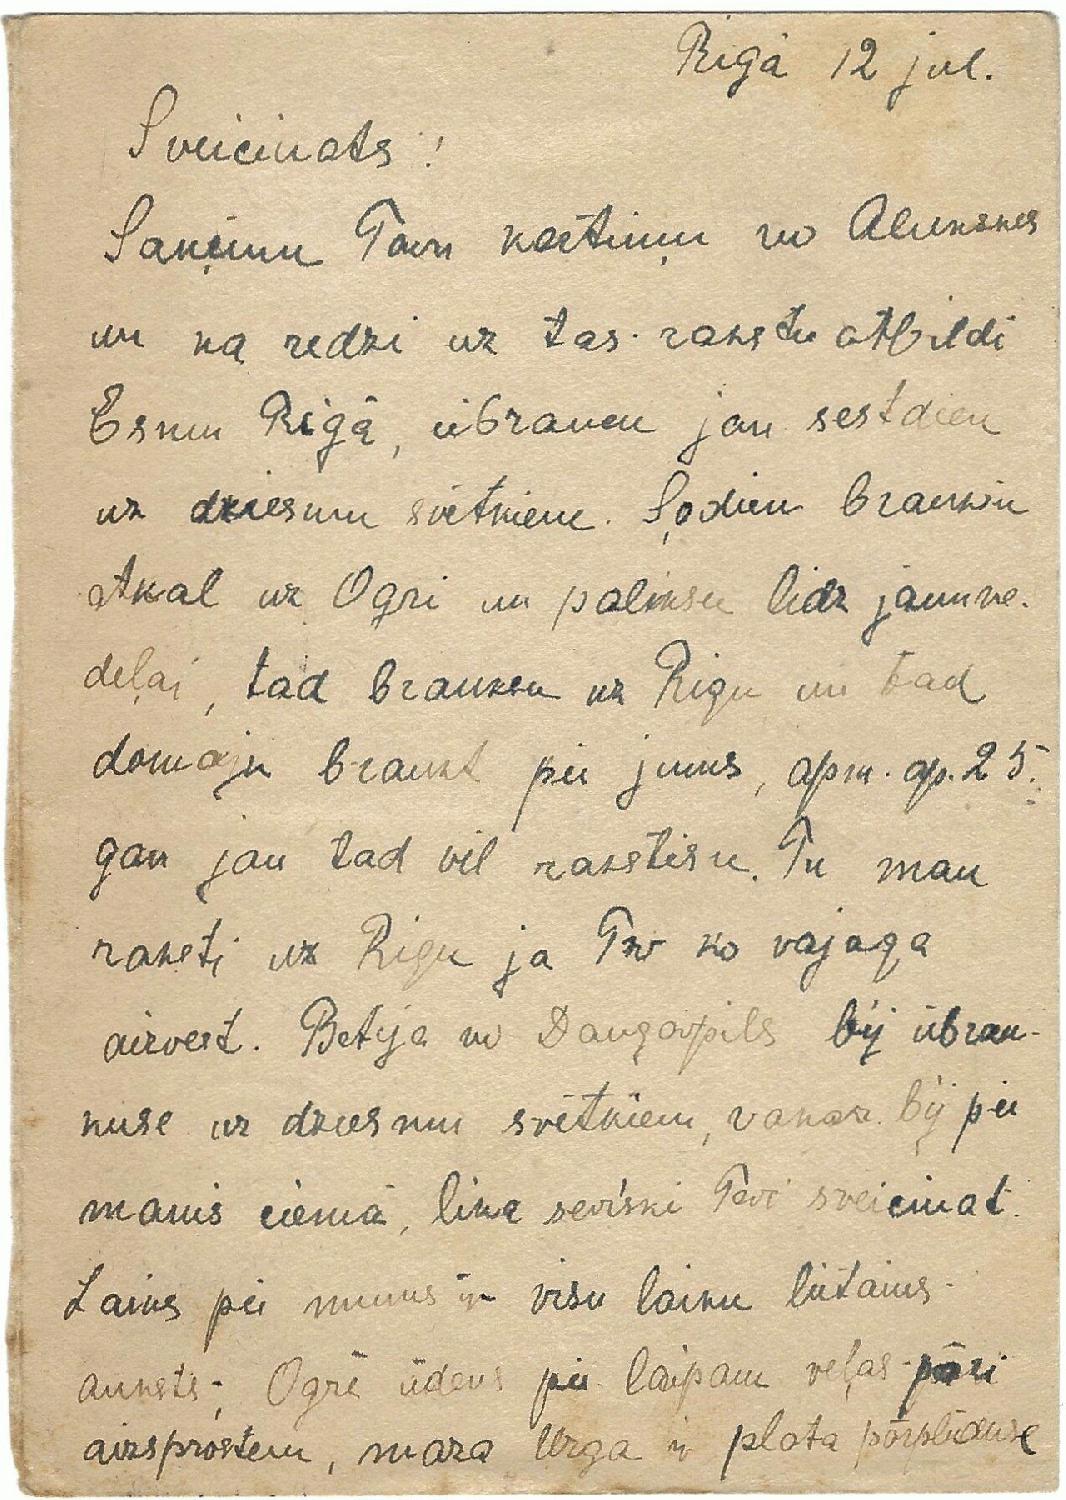 Rīgā 12 jul.
Sveicināts!
Saņēmu Tavu kartiņu no Aluksnes
un ka redzi uz tas rakstu atbildi
Esmu Rīgā, iebraucu jau sestdien
uz dziesmu svētkiem. Šodien braukšu
atkal uz Ogri un palikšu lidz jaunne-
deļai, tad braukšu uz Rigu un tad
domāju braukt pie jums, apm. ap. 25.
gan jau tad vēl rakstišu. Tu man
raksti uz Rigu ja Tev ko vajaga
aizvest. Betija no Daugavpils bij iebrau-
kuse uz dziesmu svētkiem, vakar bij pie
manis ciemā, lika sevišķi Tevi sveicinat.
Laiks pie mums ir visu laiku lietains-
auksts; Ogrē ūdens pie laipam veļas pāri
aizsprostem, maza Urga ir plata pārplūduse